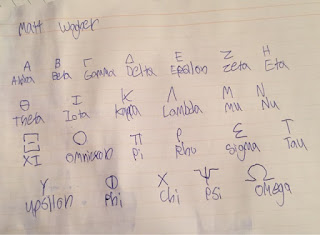 Matt
A B Γ Δ E Z H
Alpha Beta Gamma Delta Epsilon Zeta Eta
Θ I K Λ M N
Theta Iota Kappa Lambda Mu Nu
Ξ O π ρ Σ T
XI omnicron Pi Rho Sigma Tau
Υ Φ X Ψ Ω
upsilon Phi Chi Psi Omega